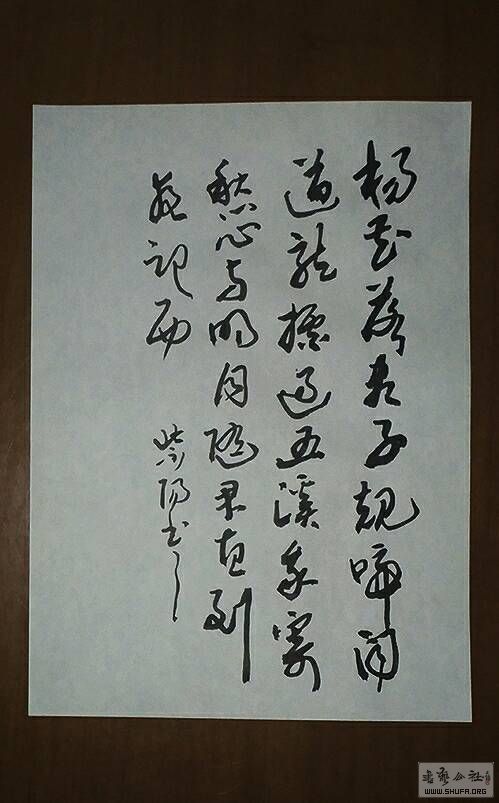 杨花落尽子规啼闻
道龙标过五溪我寄
愁心与明月随君直到
夜郎西 紫阳书
書藝公社
WWW.SHUFA.ORG